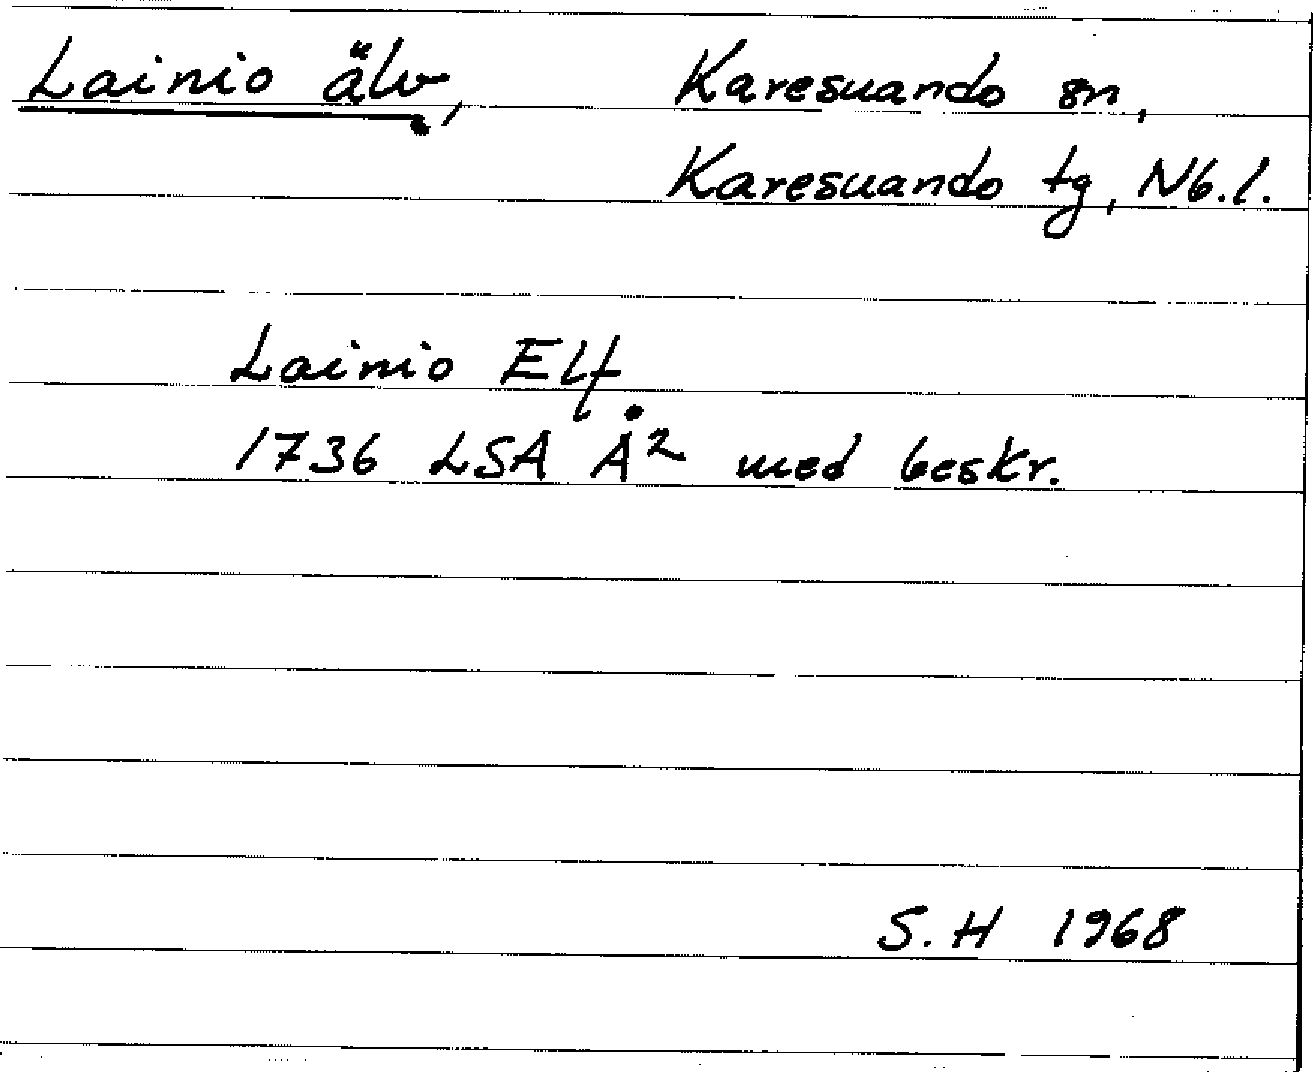 Lainio älv, Karesuando sn,
Karesuando tg, Nb.l.
Lainio Elf
1736 LSA Å² med beskr.
S.H 1968